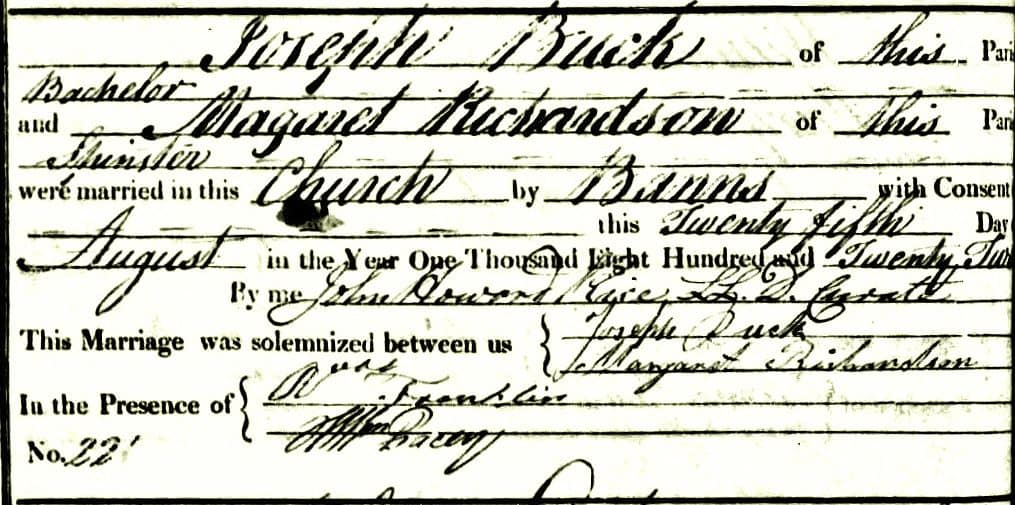 Joseph Buck of this Pari
Bachelor
and Magaret Richardson of this Pari
Spinster
were married in this Church by Banns with Consent
this Twenty fifth Day
August in the Year One Thousand Eight Hundred and Twenty Two
By me John Howard Rice LL.D. Curate
This Marriage was solemnized between us { Joseph Buck
Margaret Richardson
In the Presence of { Franklin
Wm Pacey
No. 22